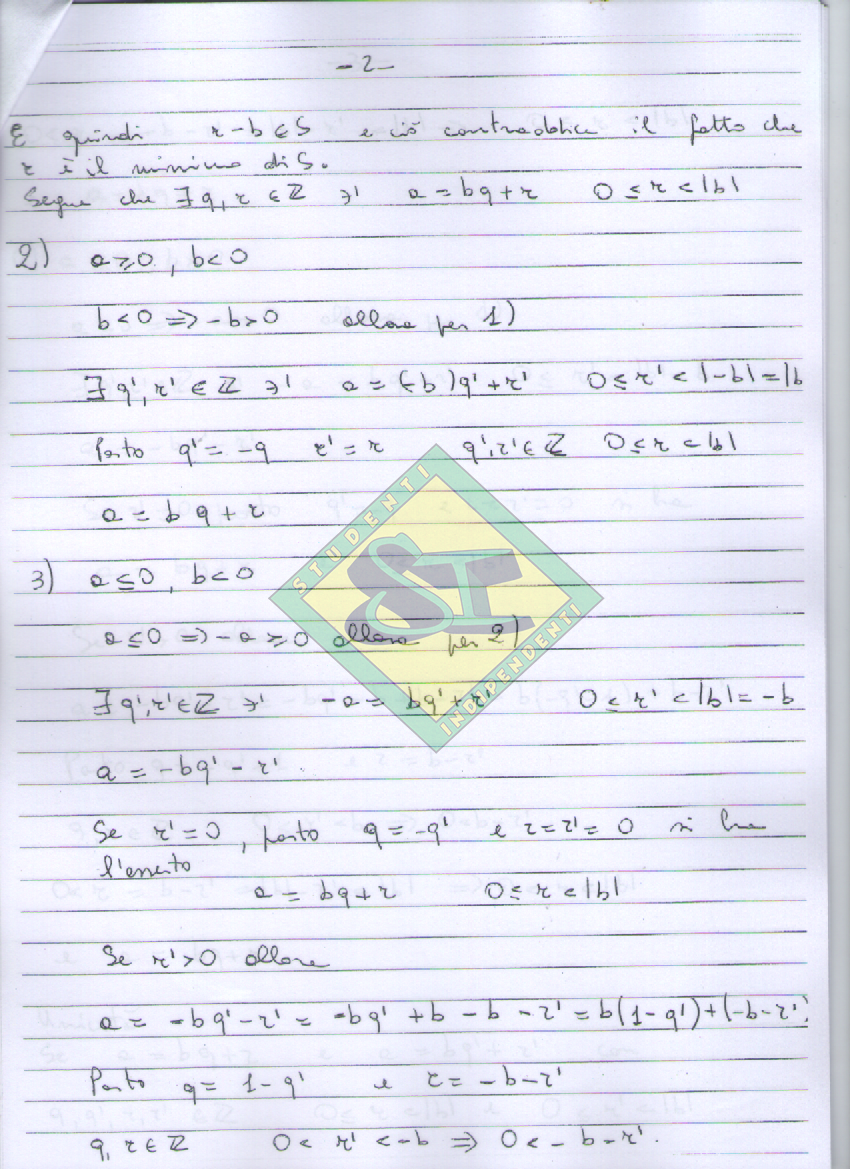 - 2 -
E quindi r-b ∈ S e ciò contraddice il fatto che
r è il minimo di S.
Segue che ∃ q, r ∈ ℤ ∋' a = bq + r 0 ≤ r < |b|
2) a ≥ 0, b < 0
b < 0 ⇒ -b > 0 allora per 1)
∃ q', r' ∈ ℤ ∋' a = (-b)q' + r' 0 ≤ r' < |-b| = |b
Posto q' = -q r' = r q', r' ∈ ℤ 0 ≤ r < |b|
a = bq + r
3) a ≤ 0, b < 0
a ≤ 0 ⇒ -a ≥ 0 allora per 2)
∃ q', r' ∈ ℤ ∋' -a = bq' + r' 0 ≤ r' < |b| = -b
a = -bq' - r'
Se r' = 0, posto q = -q' e r = r' = 0 si ha
l'asserto
a = bq + r 0 ≤ r < |b|
Se r' > 0 allora
a = -bq' - r' = -bq' + b - b - r' = b(1-q') + (-b-r')
Posto q = 1-q' e r = -b-r'
q, r ∈ ℤ 0 < r' < -b ⇒ 0 < -b-r'.
STUDENTI
SI
INDIPENDENTI